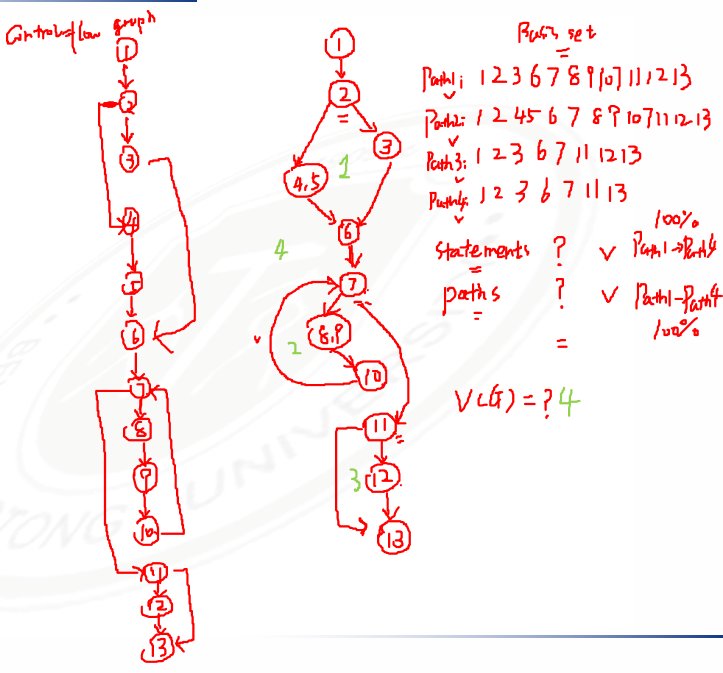 Control-flow graph
1
2
3
4
5
6
7
8
9
10
11
12
13
1
2
3
4,5
1
6
4
7
8,9
2
10
11
3
12
13
Basis set
Path1: 1 2 3 6 7 8 9 10 7 11 12 13
Path2: 1 2 4 5 6 7 8 9 10 7 11 12 13
Path3: 1 2 3 6 7 11 12 13
Path4: 1 2 3 6 7 11 13
100%
statements ? v Path1→Path4
paths ? v Path1-Path4
= 100%
V(G) = ? 4